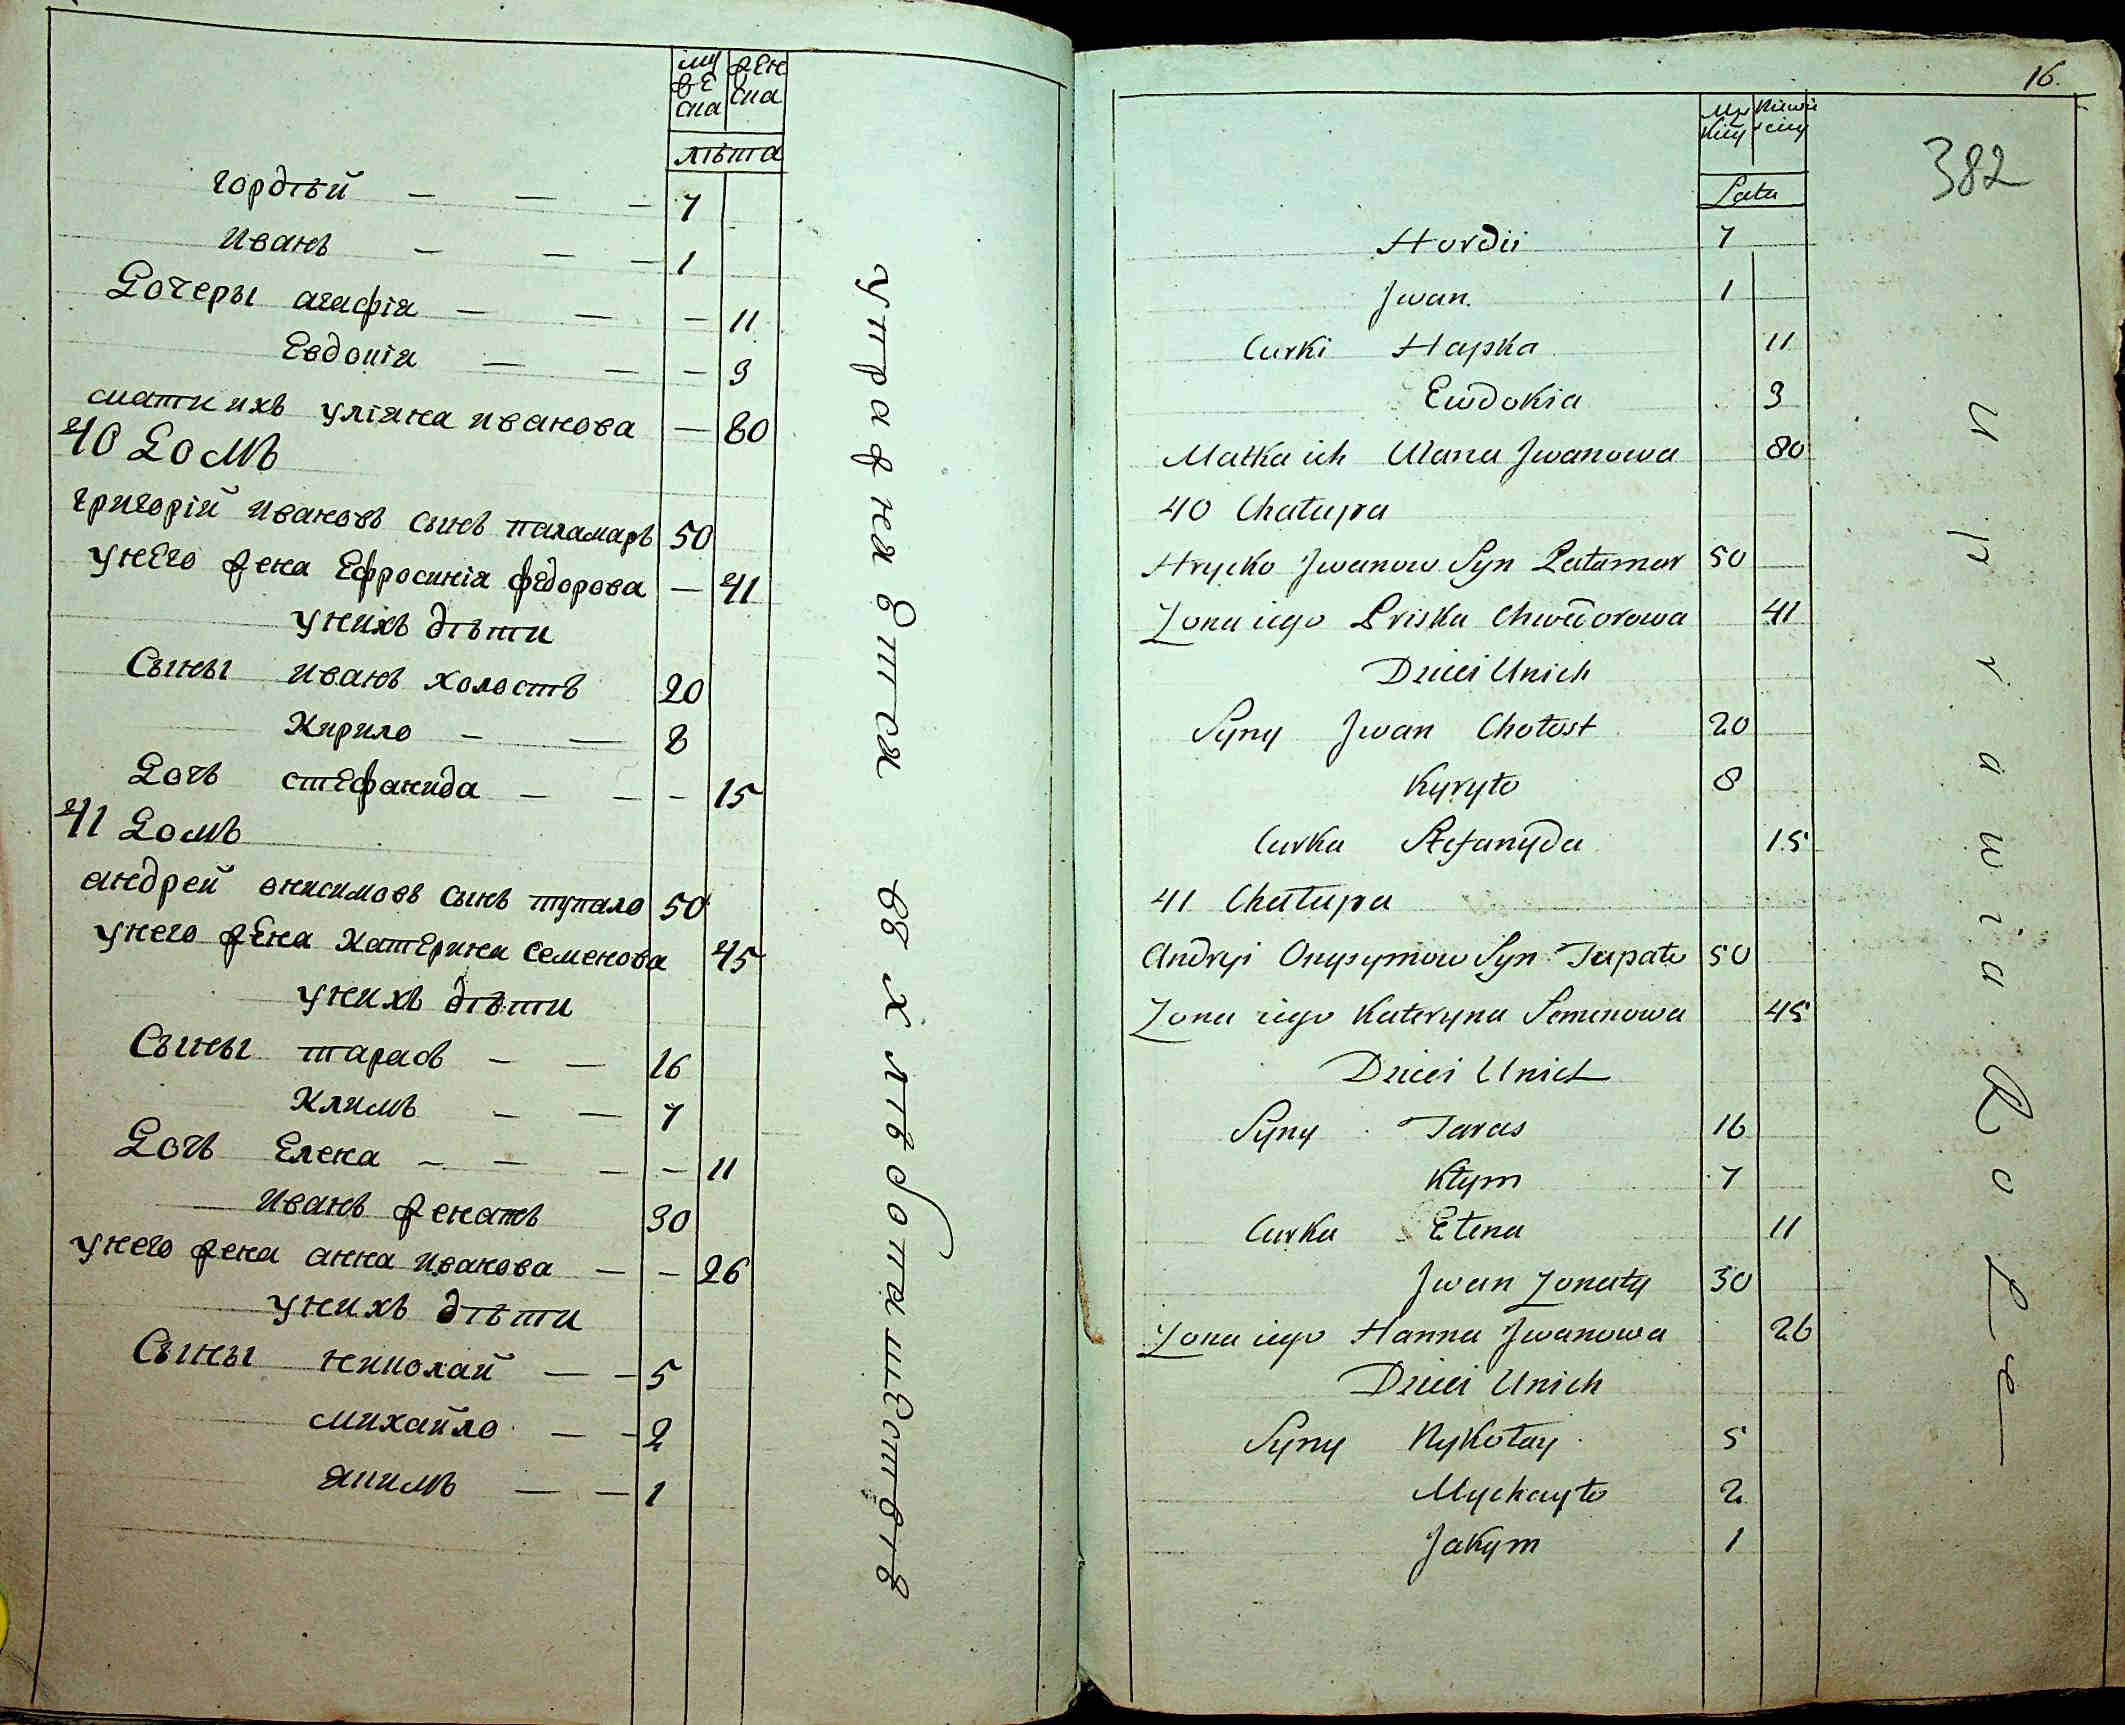 муже
ска
жен
ска
лѣта
гордѣй — — — 7
иванъ — — — 1
Дочеры агафія — — — 11
Евдокія — — — 9
матки ихъ уліяна иванова — 80
40 Домъ
григорій ивановъ сынъ паламаръ 50
унего жена Ефросинія федорова — 41
унихъ дѣти
Сыны иванъ холостъ 20
Кирило — — 8
Дочъ стефанида — — — 15
41 Домъ
андрей онисимовъ сынъ тупало 50
унего жена Катерина семенова 45
унихъ дѣти
Сыны тарасъ — — 16
Климъ — — 7
Дочъ Елена — — — — 11
иванъ женатъ 30
унего жена анна иванова — — 26
унихъ дѣти
Сыны николай — — 5
михайло — — 2
якимъ — — 1
упражняется въ хлѣбопашествѣ
16.
382
Lata
Hordii 7
Jwan 1
Curki Hapka 11
Ewdokia 9
Matka ich Ulana Jwanowa 80
40 Chałupa
Hrycko Jwanow Syn Pałamar 50
Żona iego Priska Chwedorowa 41
Dzieci Unich
Syny Jwan Chołost 20
Kyryło 8
Curka Stefanyda 15
41 Chałupa
Andryi Onysymow Syn Tupało 50
Żona iego Kateryna Semenowa 45
Dzieci Unich
Syny Taras 16
Kłym 7
Curka Ełena 11
Jwan Żonaty 30
Żona iego Hanna Jwanowa 26
Dzieci Unich
Syny Nykołay 5
Mychayło 2
Jakym 1
uprawia Role